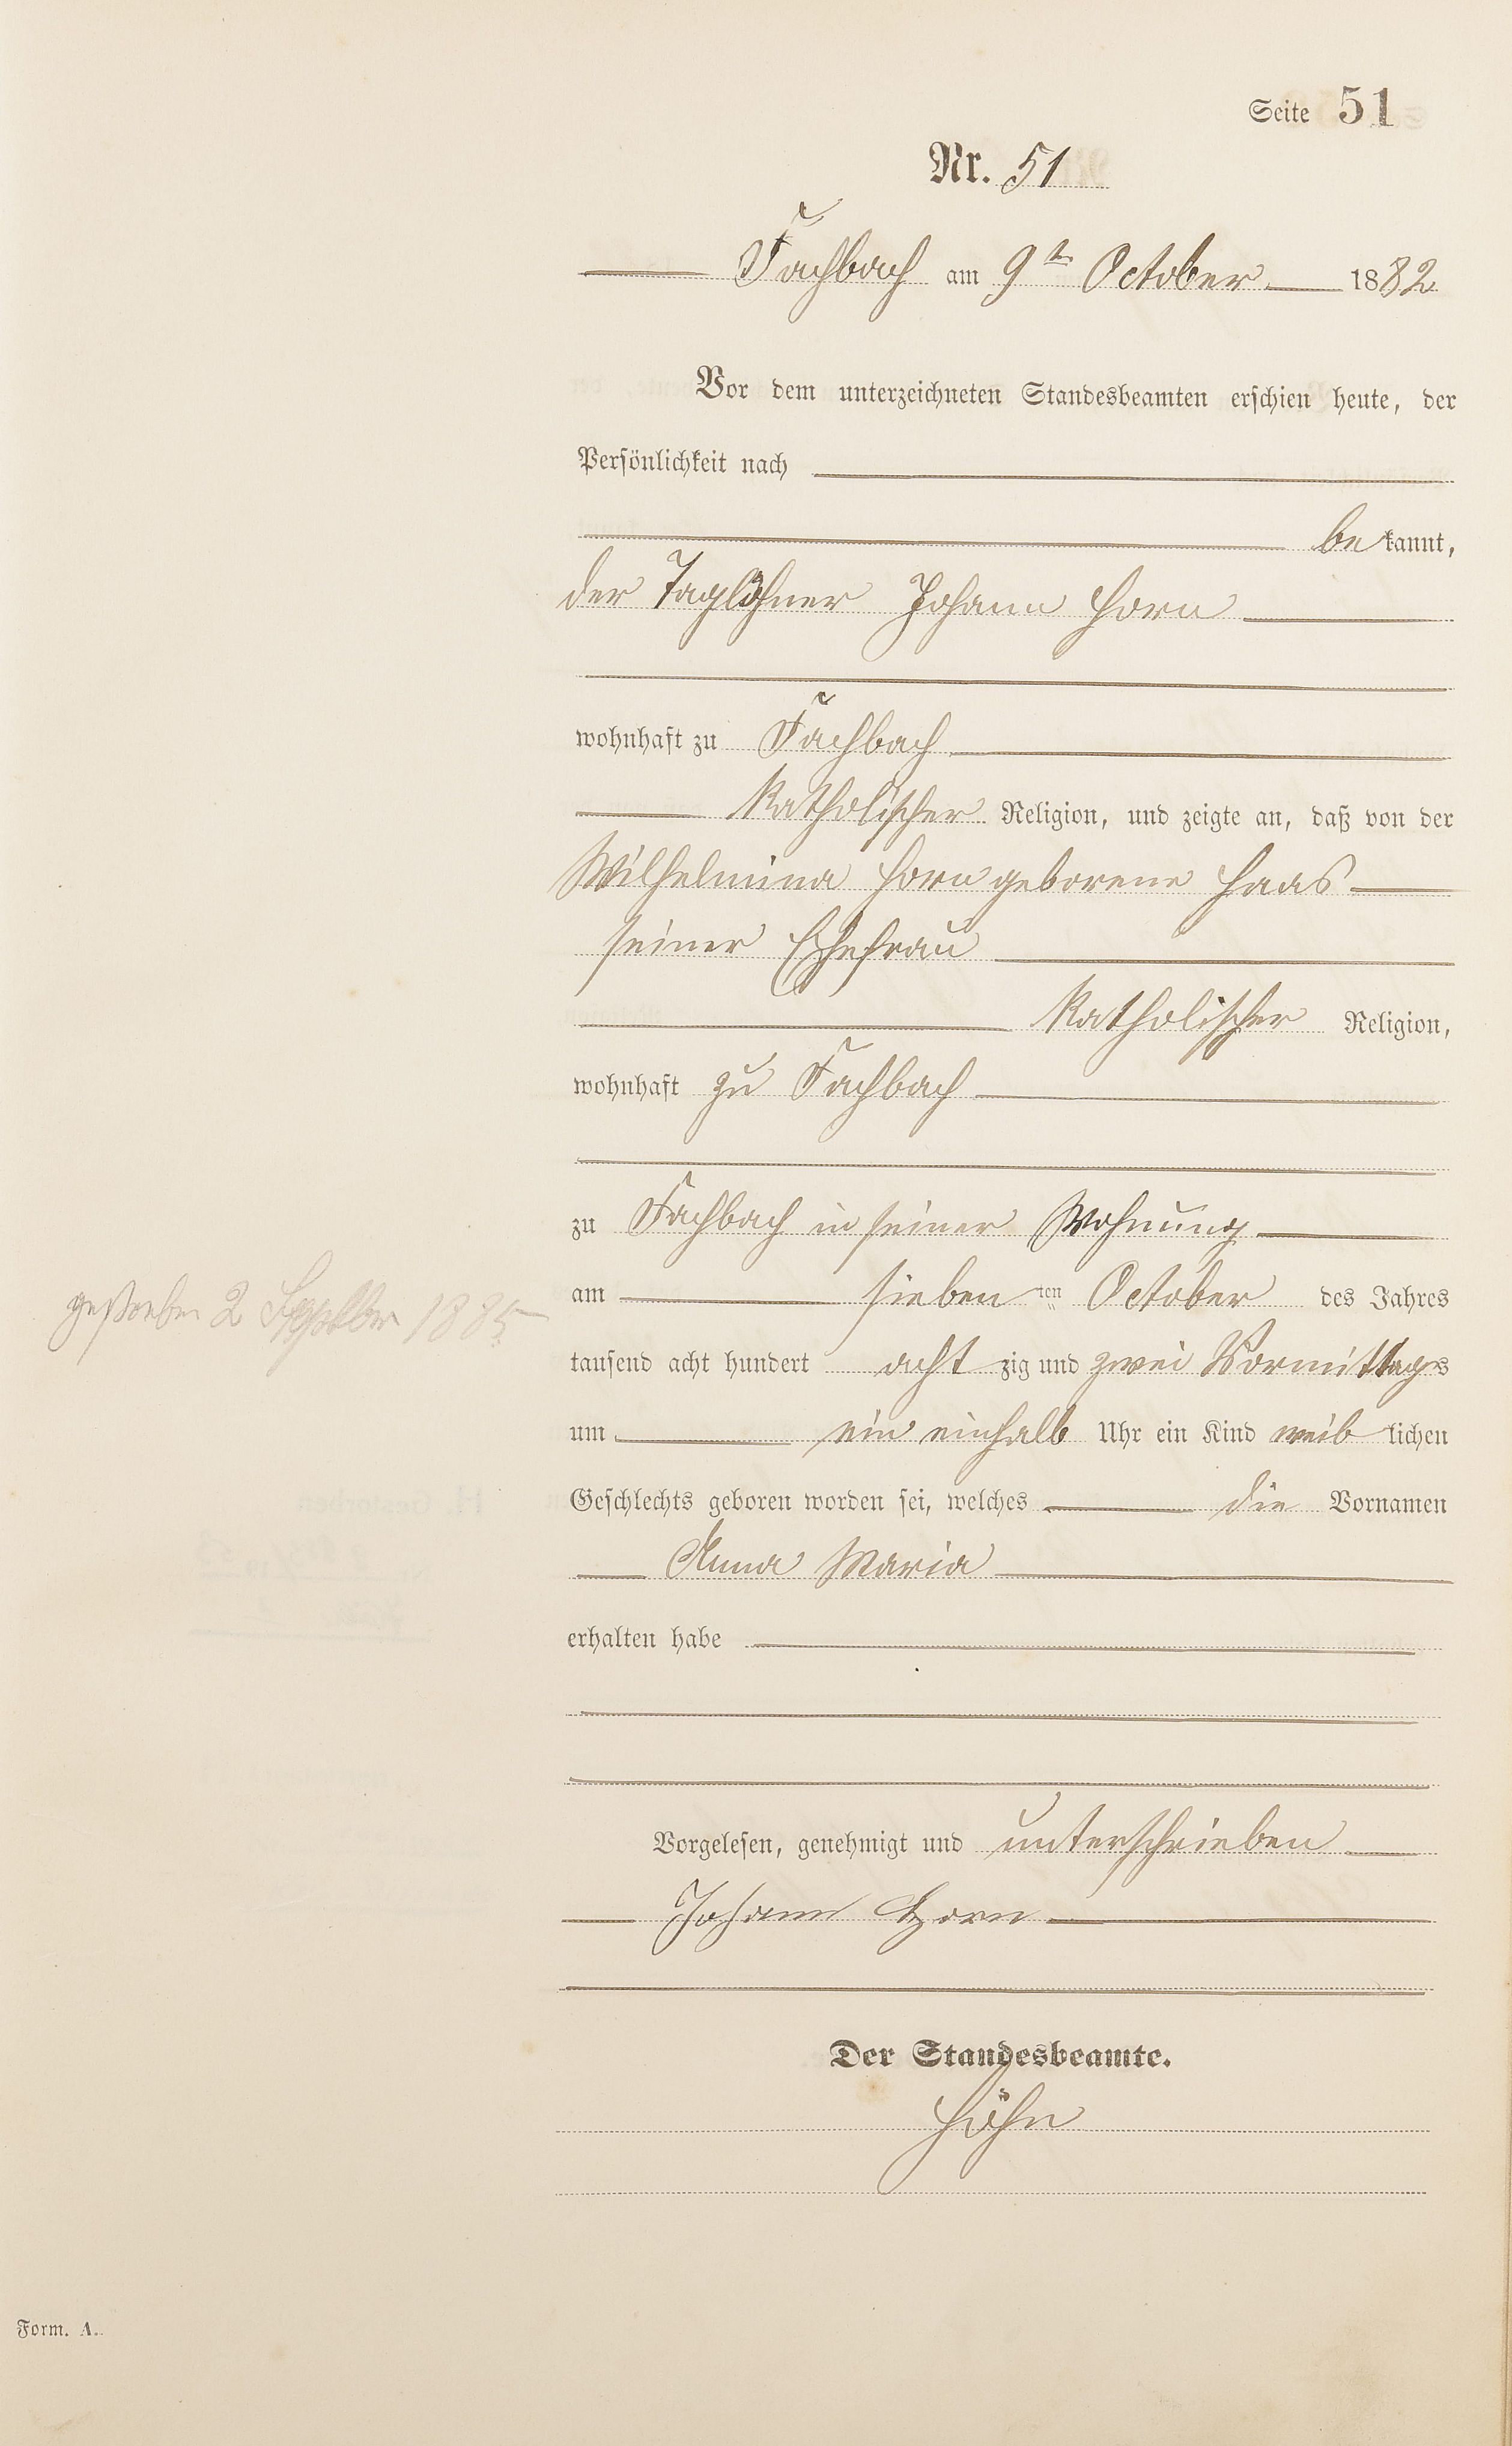 Seite 51
Nr. 51
Fachbach am 9ten October 1882
Vor dem unterzeichneten Standesbeamten erschien heute, der
Persönlichkeit nach
bekannt,
der Taglöhner Johann Horn
wohnhaft zu Fachbach
katholischer Religion, und zeigte an, daß von der
Wilhelmina Horn geborene Haas
seiner Ehefrau
katholischer Religion,
wohnhaft zu Fachbach
zu Fachbach in seiner Wohnung
am sieben ten October des Jahres
gestorben 2 Septbr 1885
tausend acht hundert achtzig und zwei Vormittags
um ein einhalb Uhr ein Kind weiblichen
Geschlechts geboren worden sei, welches die Vornamen
Anna Maria
erhalten habe
Vorgelesen, genehmigt und unterschrieben
Johann Horn
Der Standesbeamte.
Höhn
Form. A.